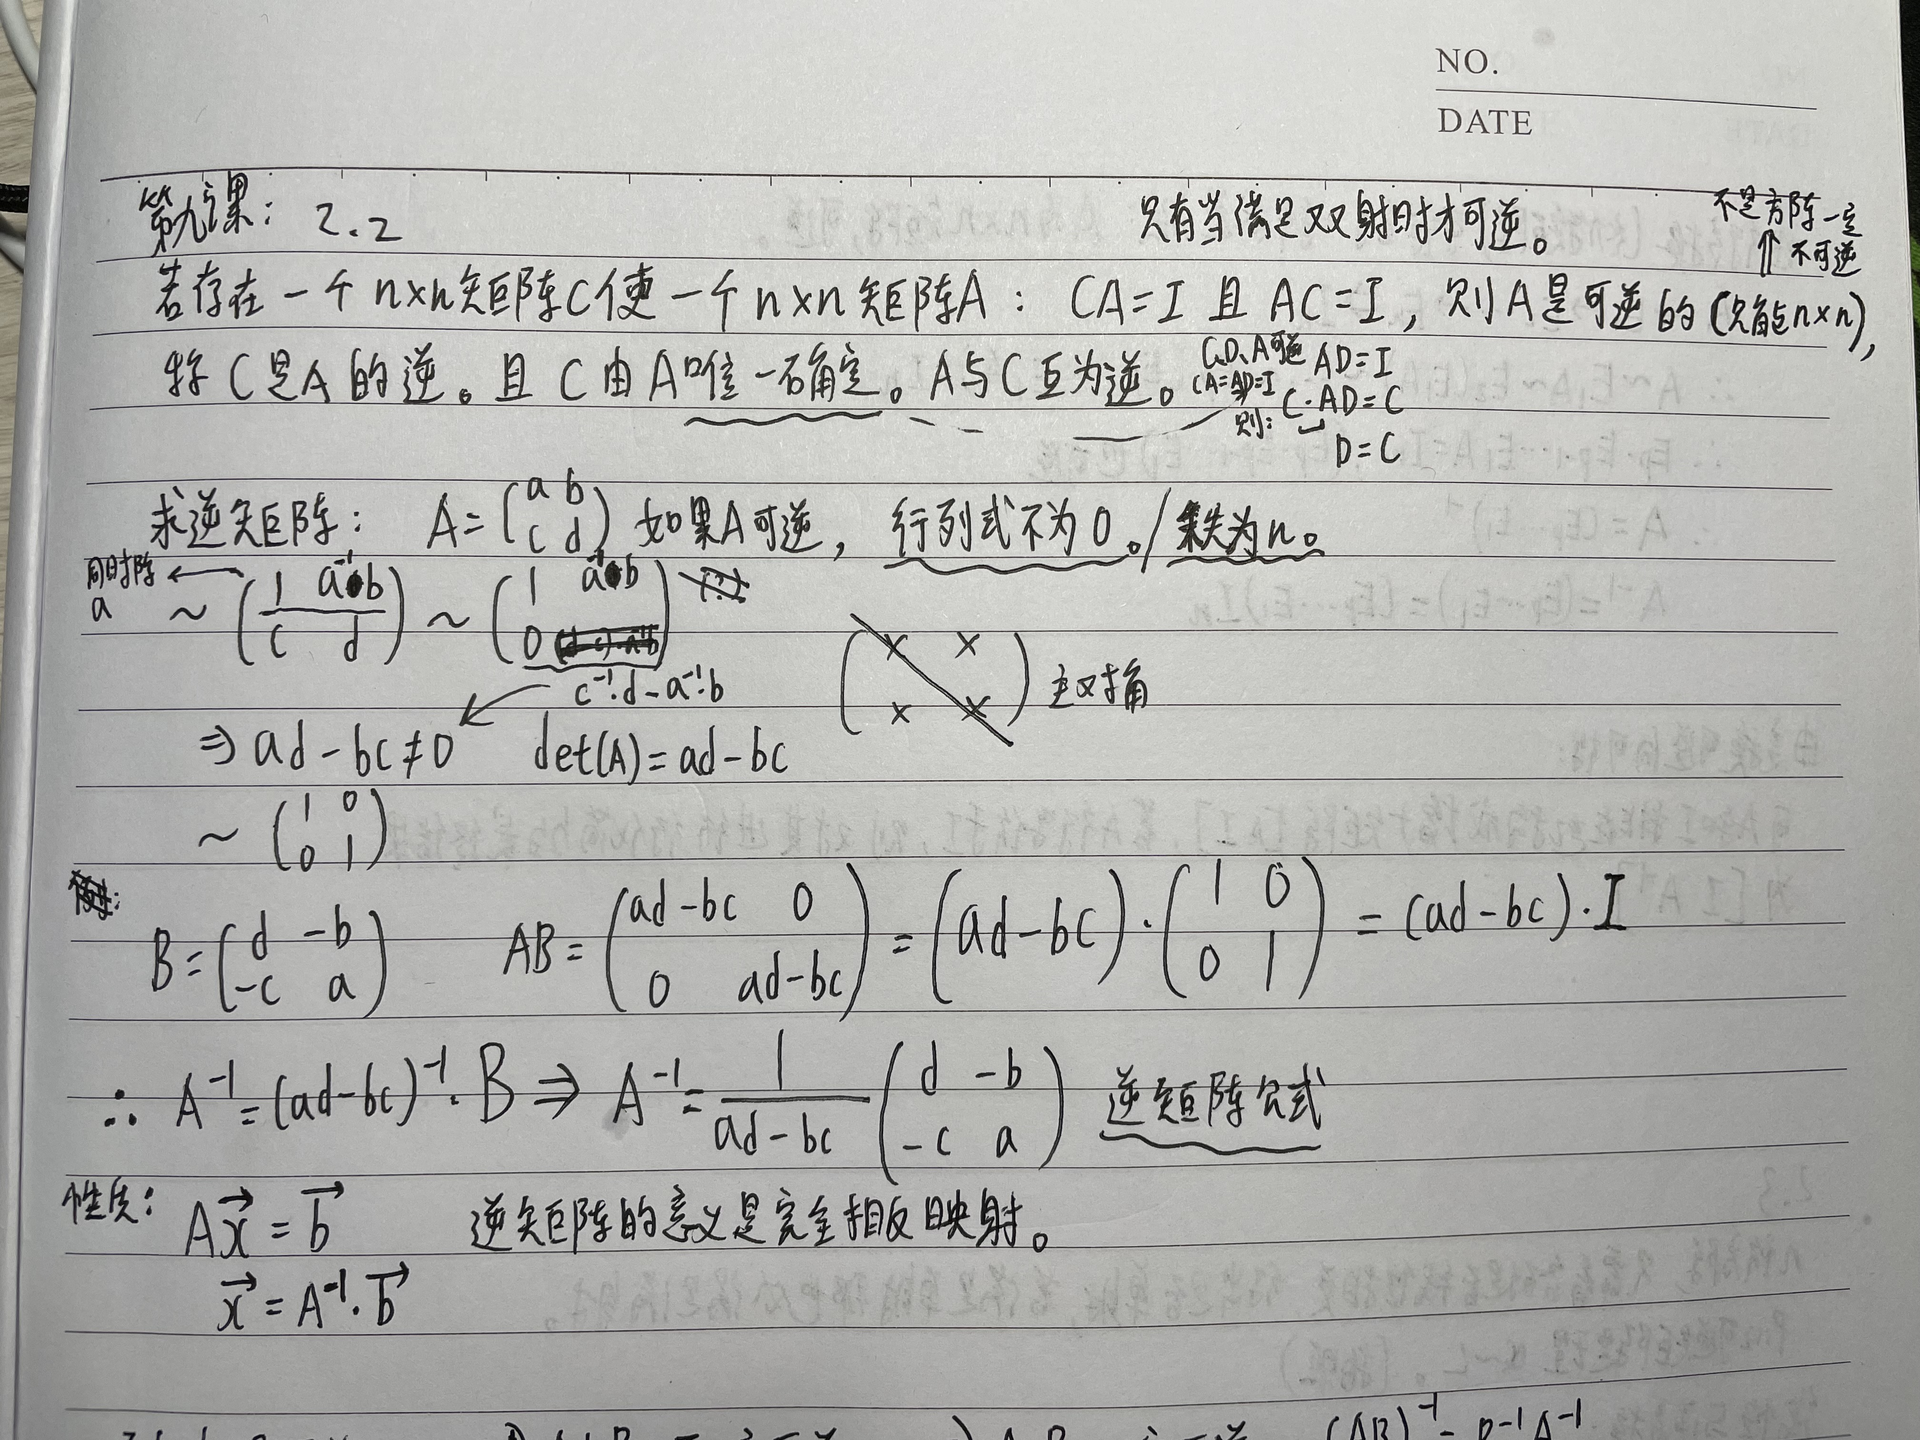 NO.
DATE
第九课: 2.2 只有当满足双射时才可逆。 不是方阵一定不可逆
若存在一个n×n矩阵C使一个n×n矩阵A: CA=I 且 AC=I, 则A是可逆的(只能n×n),
称C是A的逆。且C由A唯一确定。A与C互为逆。 C、D、A可逆 AD=I
CA=AD=I
则: C·AD=C
D=C
求逆矩阵: A=(a b
c d) 如果A可逆, 行列式不为0。/秩为n。
同时除a ← ~ (1 a⁻¹b
c d) ~ (1 a⁻¹b
0
c⁻¹·d-a⁻¹·b
(× ×
× ×) 主对角
⇒ ad-bc≠0 det(A)=ad-bc
~ (1 0
0 1)
B=(d -b
-c a) AB=(ad-bc 0
0 ad-bc) = (ad-bc)·(1 0
0 1) = (ad-bc)·I
∴ A⁻¹=(ad-bc)⁻¹·B ⇒ A⁻¹= 1/(ad-bc) (d -b
-c a) 逆矩阵公式
性质: Ax⃗=b⃗ 逆矩阵的意义是完全相反映射。
x⃗=A⁻¹·b⃗
(AB)⁻¹=B⁻¹A⁻¹